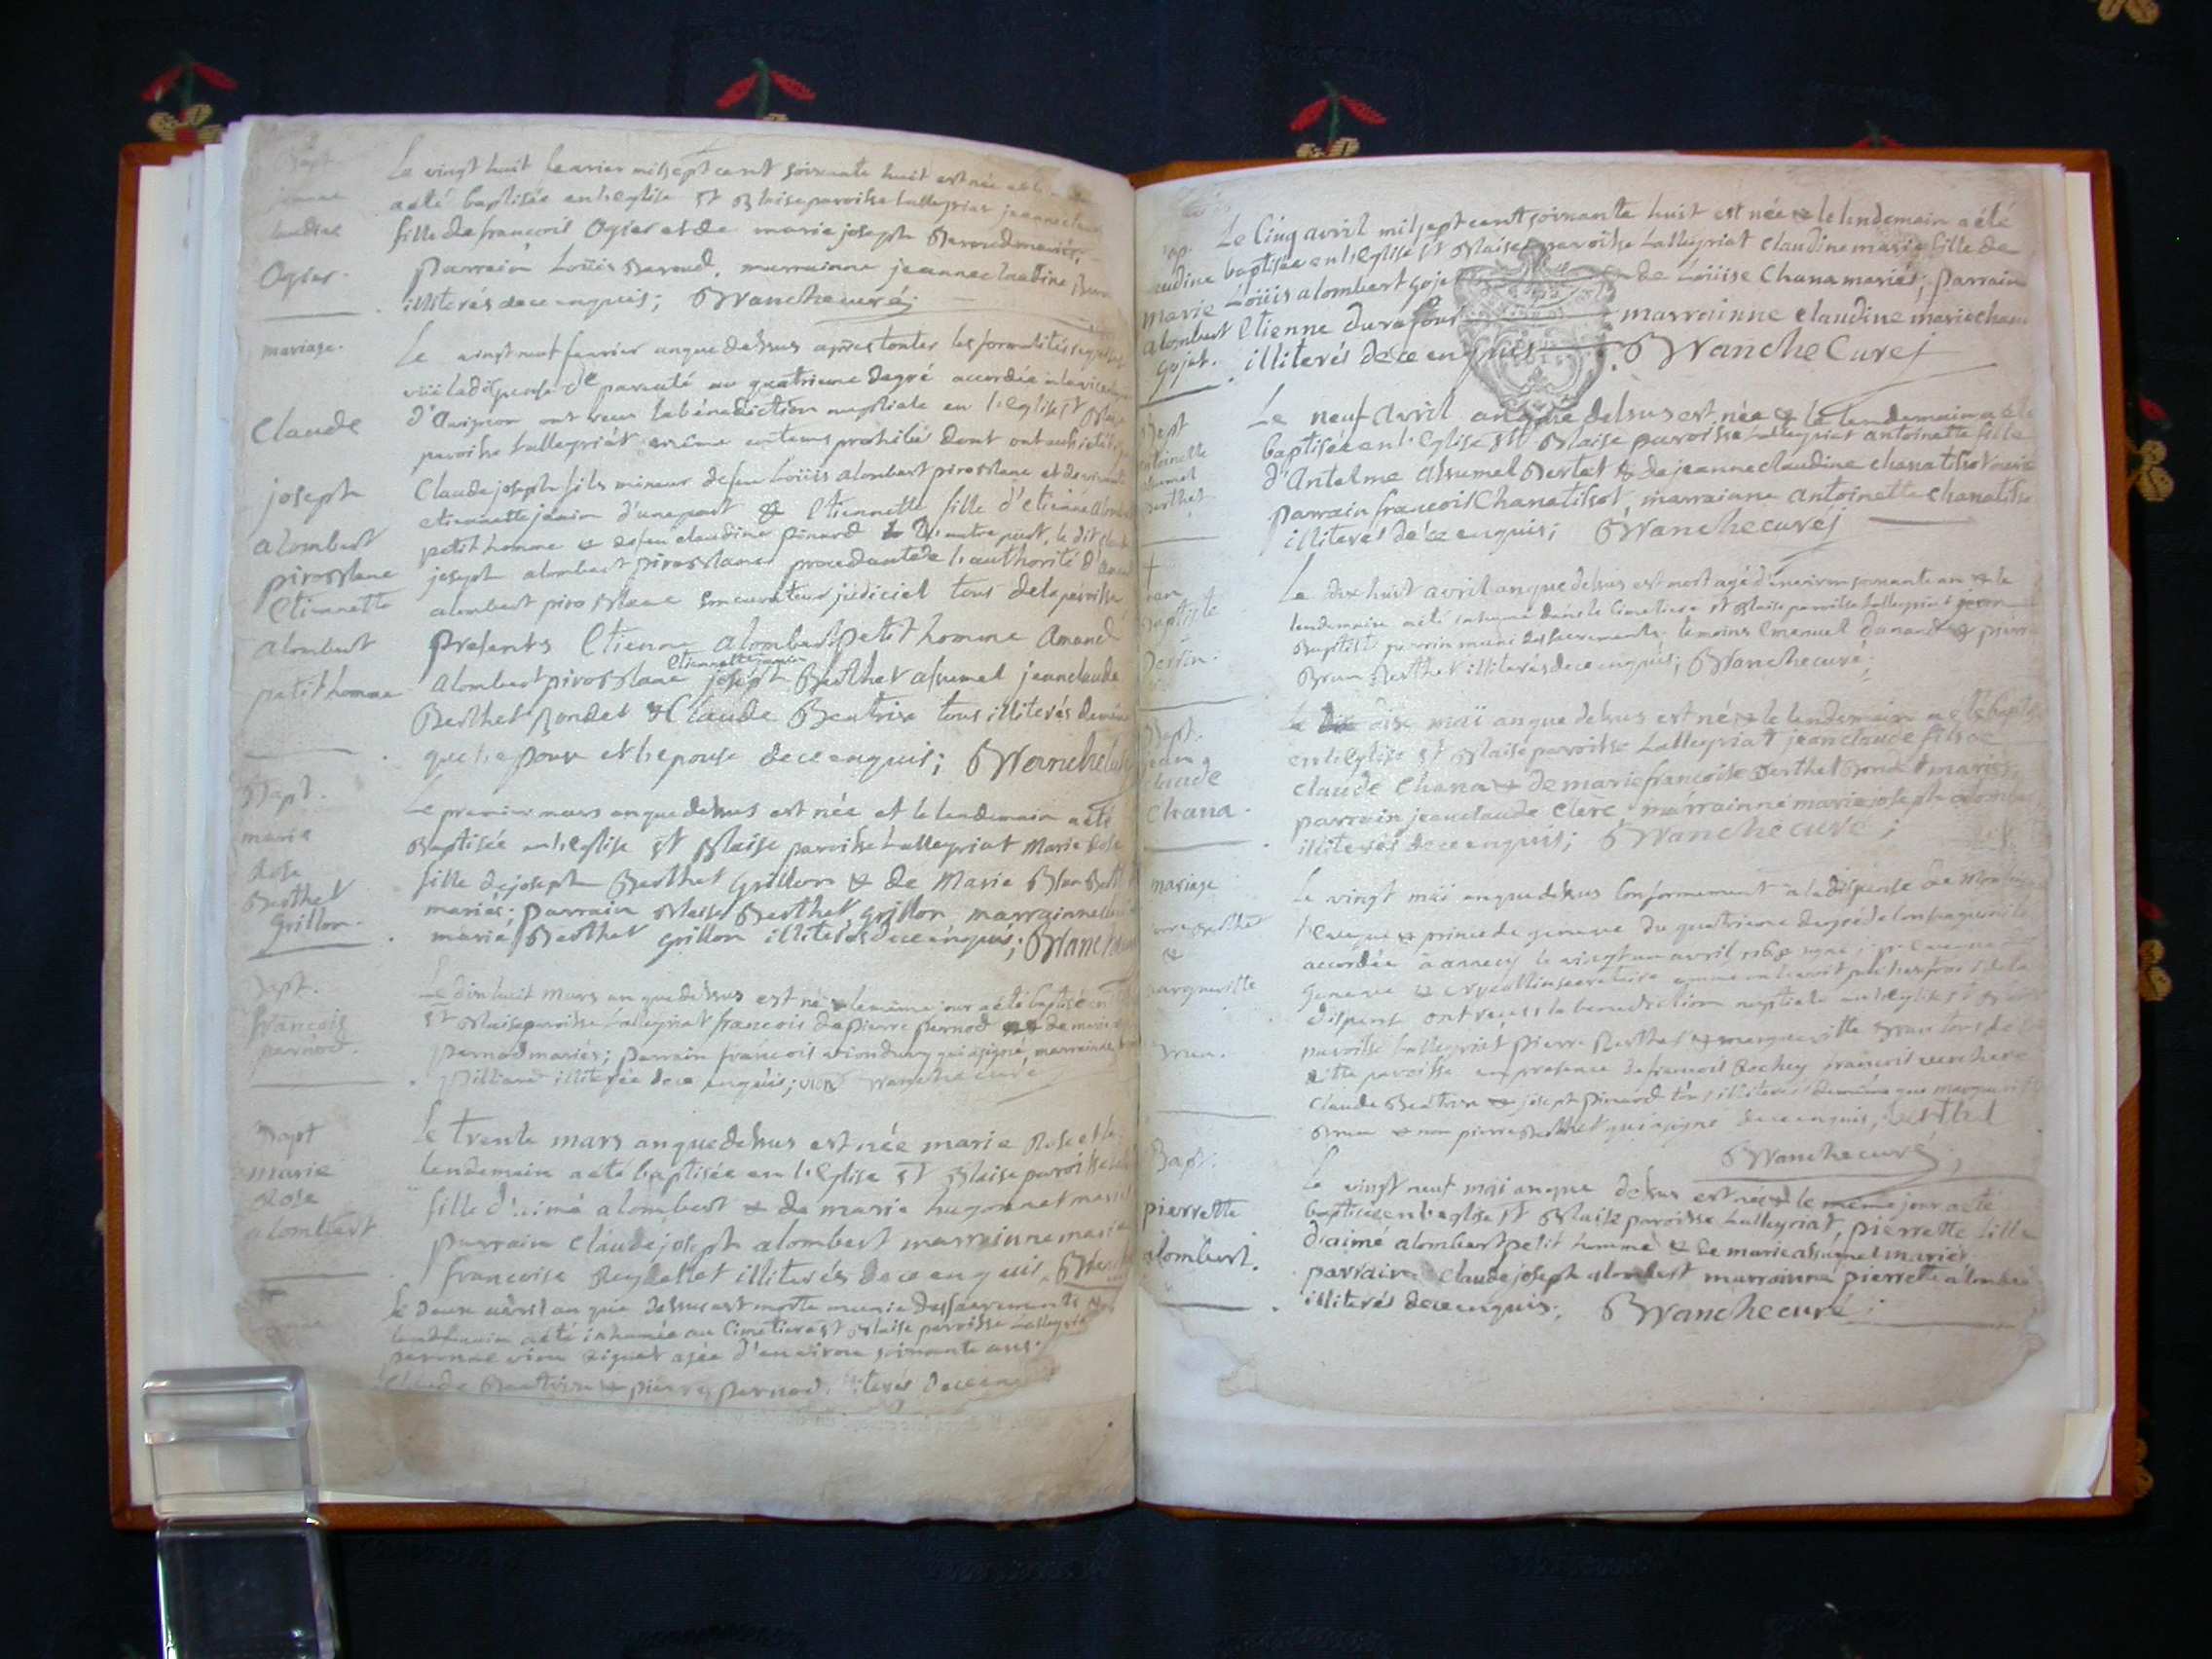 Bapt
jeanne
claudine
Ogier.
Le vingt huit fevrier mil sept cent soixante huit est née et le
a eté baptisée en l'eglise St Blaise paroisse Lalleyriat jeanne claudine
fille de francois Ogier et de marie joseph mariés,
parrain Loüis marrainne jeanne claudine
illiterés de ce enquis; BVanche curé;
mariage.
Claude
joseph
alombert
piroblanc
Etiennette
alombert
petit homme
Le vingt neuf fevrier an que dessus apres toutes les formalités
vüe la dispense de parenté au quatrieme degré accordée
d'Avignon ont receu la bénédiction nuptiale en l'eglise St Blaise
paroisse Lalleyriat en tems prohibé dont ont aussi
Claude joseph fils mineur de feu Loüis alombert piroblanc et de
etiennette janin d'une part & Etiennette fille d'etienne alombert
petit homme & de feu claudine pinard d'autre part, le dit claude
joseph alombert piroblanc procedant de l'authorité d'amand
alombert piroblanc son curateur judiciel tous de la paroisse
presents Etienne alombert petit homme Amand
etiennette janin
alombert piroblanc joseph Berthet assumel jean claude
Berthet Rondet & Claude Beatrix tous illiterés de même
que l'epoux et l'epouse de ce enquis; BVanche curé
Bapt.
marie
Rose
Berthet
Grillon.
Le premier mars an que dessus est née et le lendemain a eté
Baptisée en l'eglise St Blaise paroisse Lalleyriat Marie Rose
fille de joseph Berthet Grillon & de Marie
mariés; parrain Blaise Berthet grillon marrainne
marie Berthet grillon illiterés de ce enquis; BVanche
Bapt.
francois
pernod.
Le dix huit mars an que dessus est né & le meme jour a eté baptisé en
St Blaise paroisse Lalleyriat francois de pierre pernod & de marie
pernod mariés; parrain francois qui a signé, marrainne
illiterée de ce enquis; BVanche curé
Bapt
marie
Rose
alombert
Le trente mars an que dessus est née marie Rose et le
lendemain a eté baptisée en l'eglise St Blaise paroisse
fille d'aimé alombert & de marie hugonnet mariés
parrain claude joseph alombert marrainne marie
francoise Reydellet illiterés de ce enquis BVanche
Le deux avril an que dessus est morte munie des sacrements &
lendemain a eté inhumée au Cimetiere St Blaise paroisse Lalleyriat
agée d'environ soixante ans.
Claude Beatrix & pierre pernod, illiterés de ce
Bap.
claudine
marie
alombert
gojet.
Le Cinq avril mil sept cent soixante huit est née & le lendemain a eté
baptisée en l'eglise St Blaise paroisse Lalleyriat claudine marie fille de
Loüis alombert gojet de Loüise Chana mariés; parrain
Etienne durafour marrainne claudine marie chana
illiterés de ce enquis BVanche Curé;
Bapt
antoinette
assumel
Berthet
Le neuf avril an que dessus est née & le lendemain a eté
baptisée en l'eglise St Blaise paroisse Lalleyriat antoinette fille
d'Antelme assumel Bertet & de jeanne claudine chanatissot mariés
parrain francois Chanatissot, marrainne antoinette chanatissot
illiterés de ce enquis; BVanche curé;
jean
baptiste
perrin.
Le dix huit avril an que dessus est mort agé d'environ soixante an & le
lendemain a eté inhumé dans le Cimetiere St Blaise paroisse Lalleyriat jean
Baptiste perrin muni des sacrements. temoins Emanuel & pierre
Brun Berthet illiterés de ce enquis; BVanche curé;
Bapt.
jean
claude
Chana.
Le dix maï an que dessus est né & le lendemain a eté baptisé
en l'eglise St Blaise paroisse Lalleyriat jean claude fils de
claude Chana & de marie francoise Berthet Rondet mariés,
parrain jean claude Clerc, marrainne marie joseph alombert
illiterés de ce enquis; BVanche curé;
mariage
pierre Berthet
&
marguerite
Brun.
Le vingt maï an que dessus conformement a la dispense de
l'eveque & prince de geneve du quatrieme degré de consanguinité
accordée a annecy le vingt un avril 1768 signé
geneve & secretaire comme on le voit
dispense ont receu la benediction nuptiale en l'eglise St Blaise
paroisse Lalleyriat pierre Berthet & marguerite Brun tous de la
ditte paroisse en presence de francois Rochey francois
claude Beatrix & joseph pinard tous illiterés de même que marguerite
Brun & non pierre Berthet qui a signé de ce enquis, berthet
BVanche curé;
Bapt.
pierrette
alombert.
Le vingt neuf maï an que dessus est née & le même jour a eté
baptisée en l'eglise St Blaise paroisse Lalleyriat, pierrette fille
d'aimé alombert petit homme & de marie assumel mariés
parrain Claude joseph alombert marrainne pierrette alombert
illiterés de ce enquis; BVanche curé;